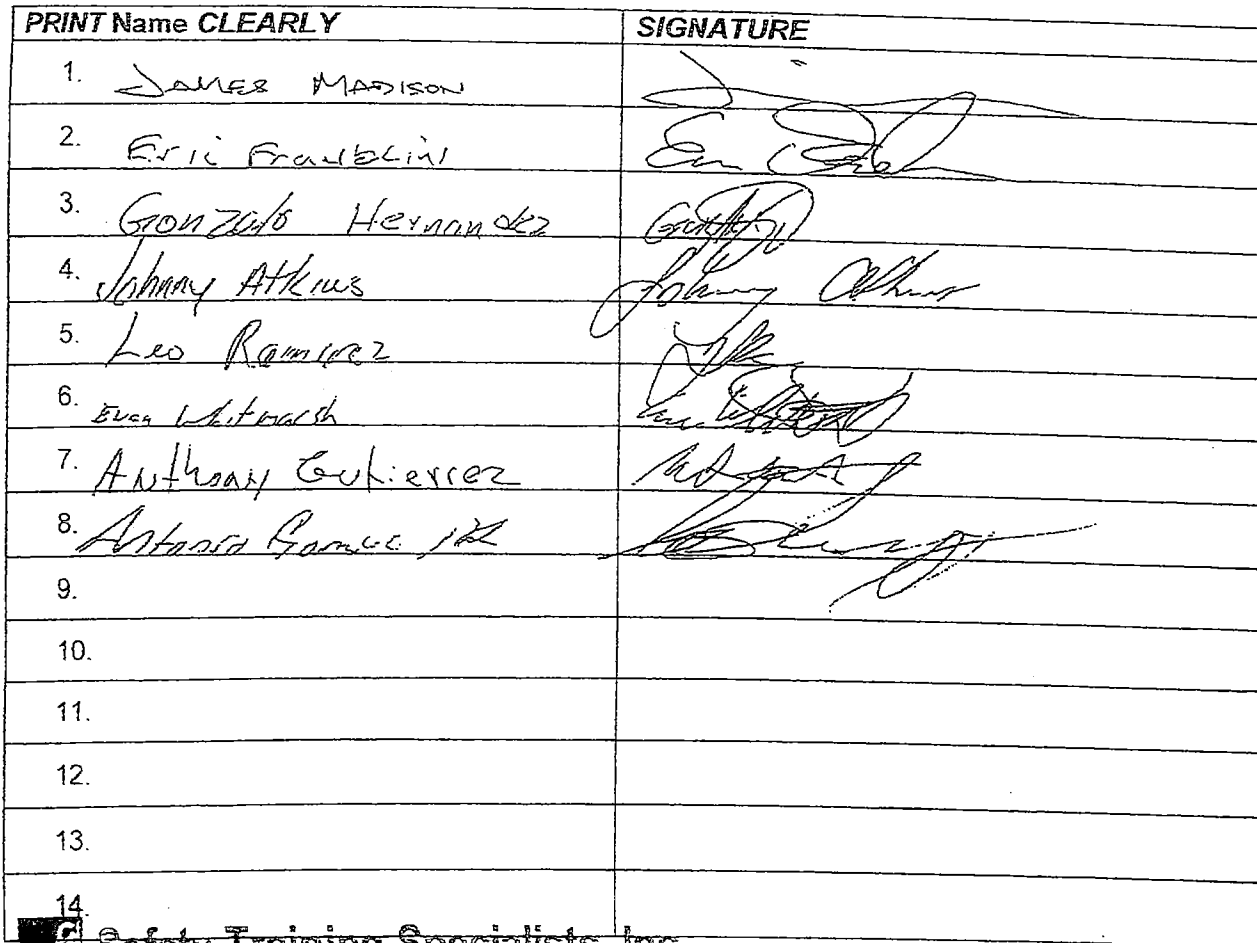 PRINT Name CLEARLY SIGNATURE
1. JAMES MADISON
2. Eric Franklin
3. Gonzalo Hernandez
4. Johnny Atkins Johnny Atkins
5. Leo Ramirez
6. Evan Whitmarsh
7. Anthony Gutierrez
8. Antonio
9.
10.
11.
12.
13.
14.
Safety Training Specialists, Inc.